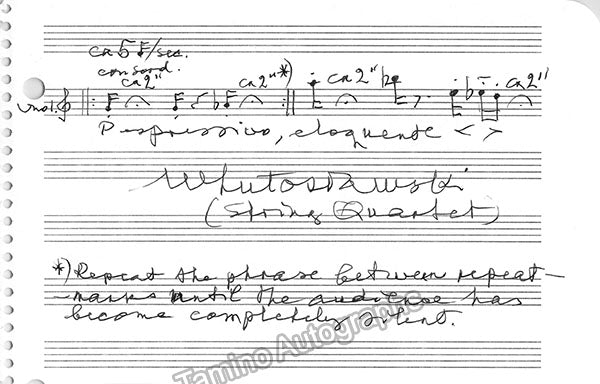 ca 5 ♪/sec.
con sord.
ca 2" ca 2" *) ca 2" ca 2"
vno I.
P espressivo, eloquente < >
WLutosławski
(String Quartet)
*) Repeat the phrase between repeat-
-marks until the audience has
become completely silent.
Tamino Autographs